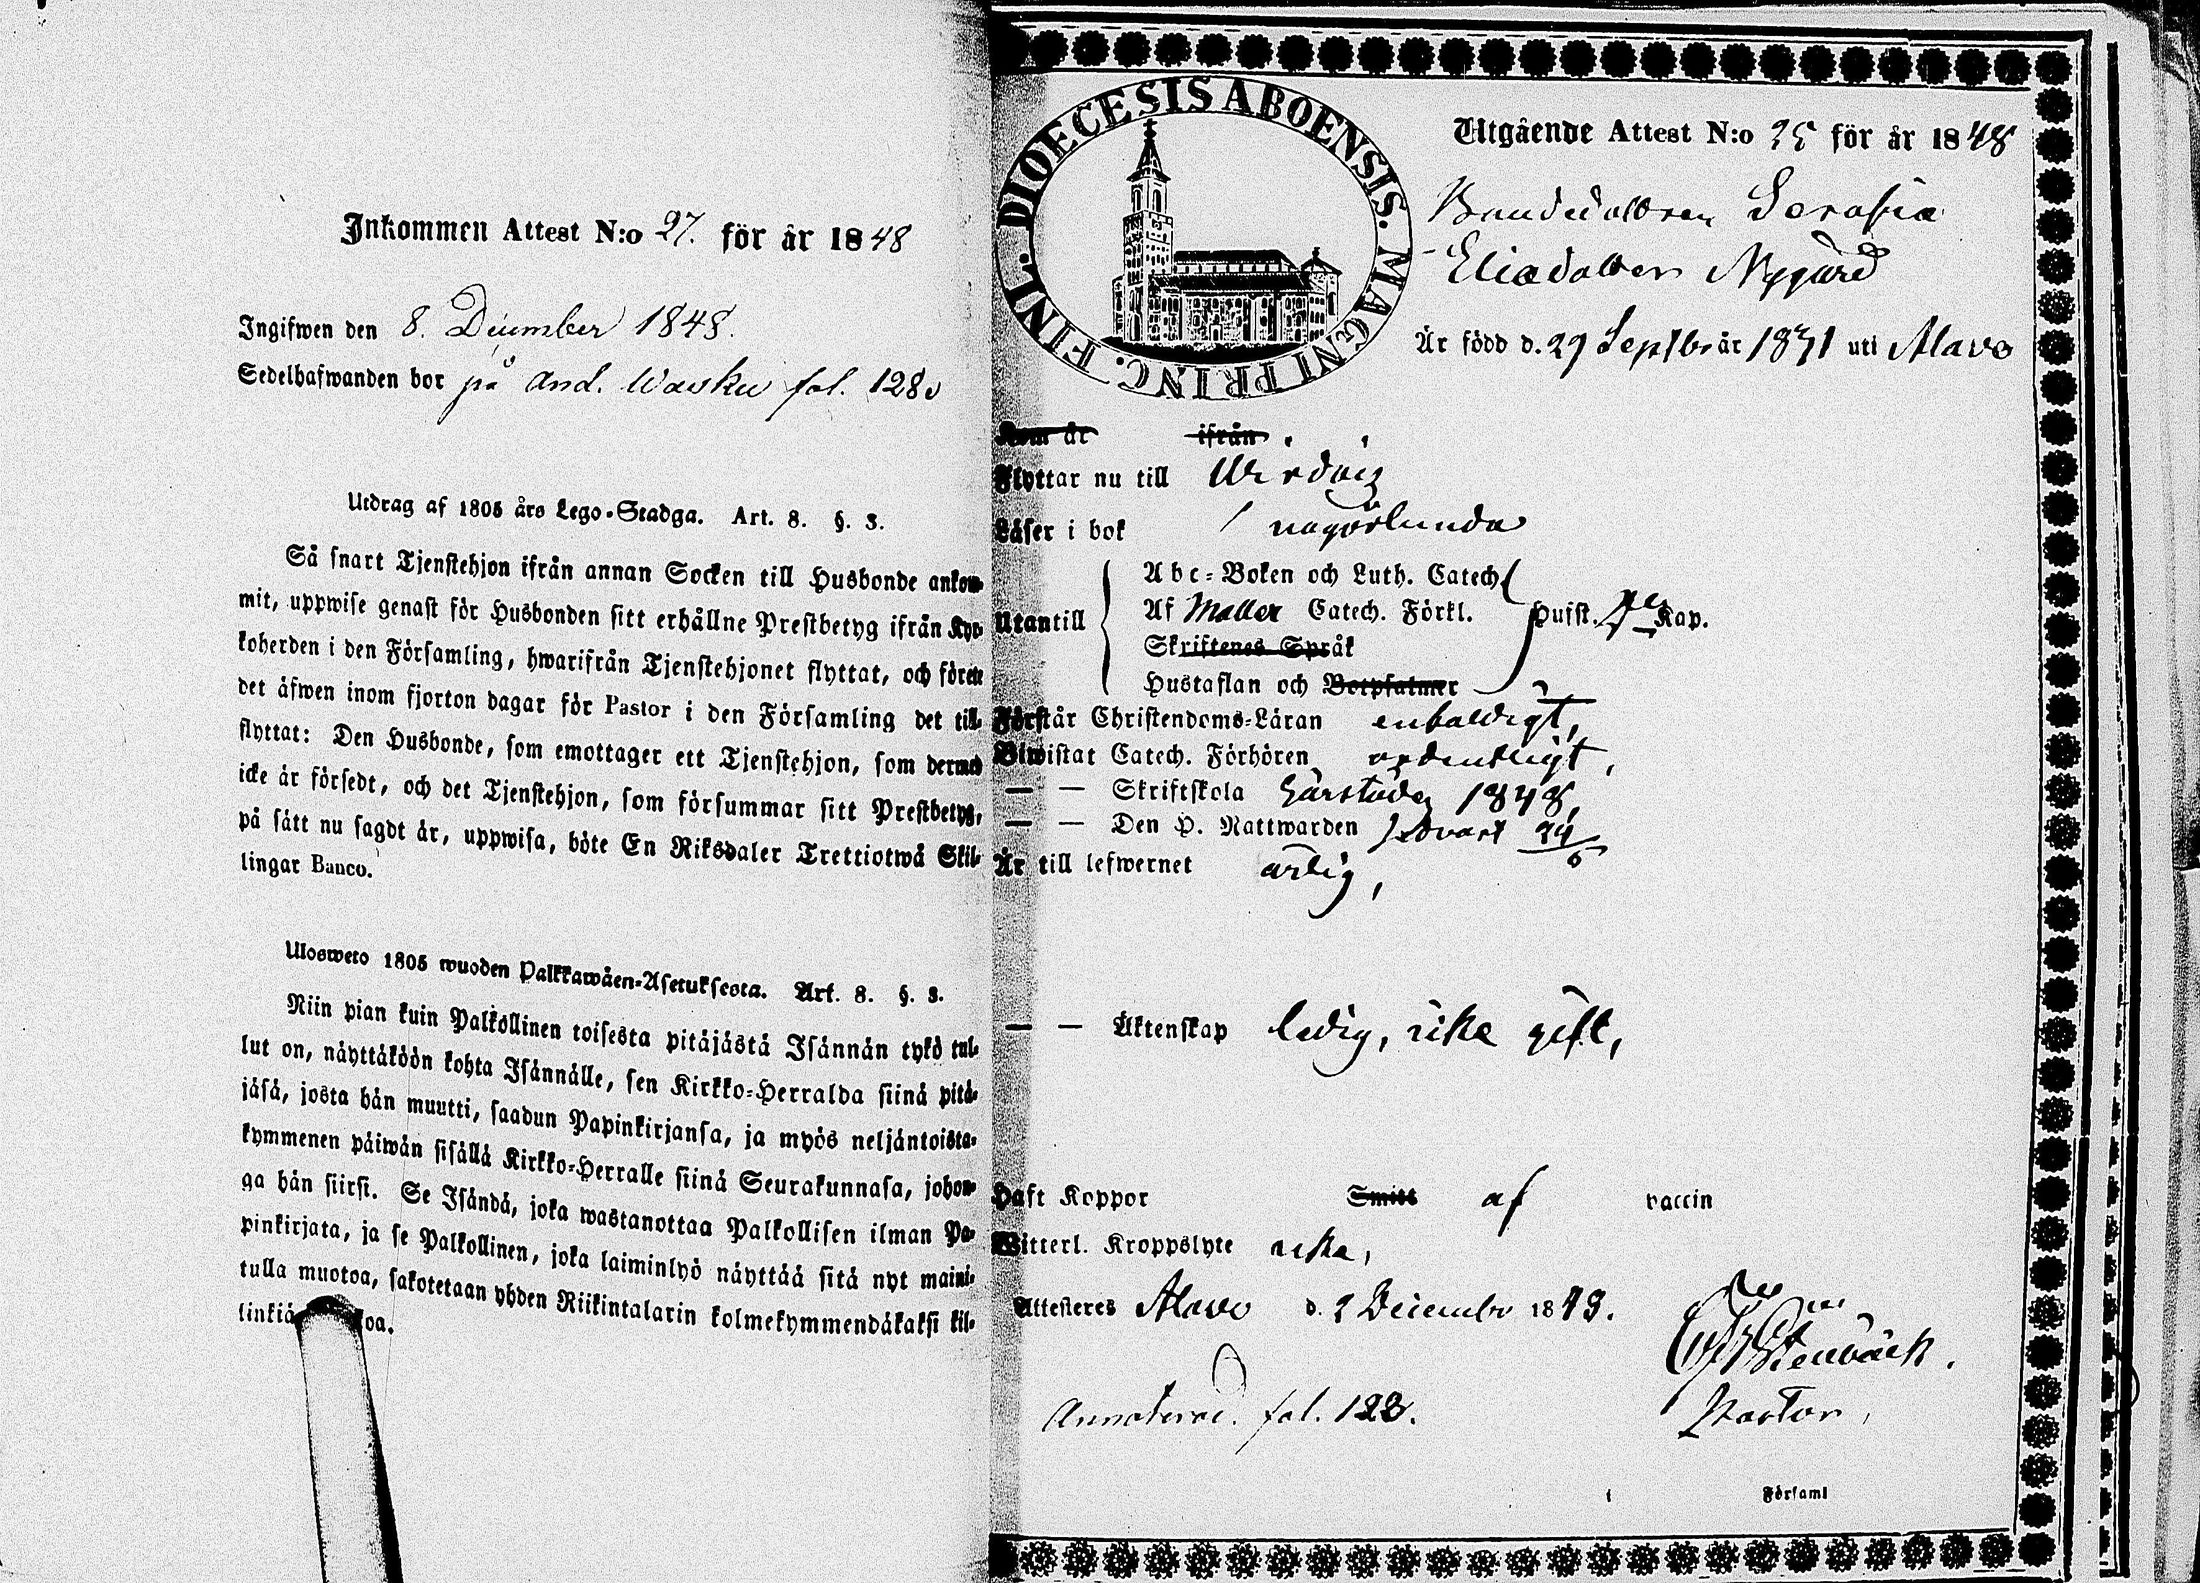 Inkommen Attest N:o 27. för år 1848
Ingifwen den 8. December 1848.
Sedelhafwanden bor på And. Wasku fol. 128
Utdrag af 1805 års Lego-Stadga. Art. 8. §. 3.
Så snart Tjenstehjon ifrån annan Socken till Husbonde ankom-
mit, uppwise genast för Husbonden sitt erhållne Prestbetyg ifrån Kyr-
koherden i den Församling, hwarifrån Tjenstehjonet flyttat, och förete
det äfwen inom fjorton dagar för Pastor i den Församling det till-
flyttat: Den Husbonde, som emottager ett Tjenstehjon, som dermed
icke är försedt, och det Tjenstehjon, som försummar sitt Prestbetyg,
på sätt nu sagdt är, uppwisa, böte En Riksdaler Trettiotwå Skil-
lingar Banco.
Ulosweto 1805 wuoden Palkkawäen-Asetuksesta. Art. 8. §. 3.
Niin pian kuin Palkollinen toisesta pitäjästä Isännän tykö tul-
lut on, näyttäköön kohta Isännälle, sen Kirkko-Herralda siinä pitä-
jäsä, josta hän muutti, saadun Papinkirjansa, ja myös neljäntoista-
kymmenen päiwän sisällä Kirkko-Herralle siinä Seurakunnasa, johon-
ga hän siirsi. Se Isändä, joka wastanottaa Palkollisen ilman Pa-
pinkirjata, ja se Palkollinen, joka laiminlyö näyttää sitä nyt maini-
tulla muotoa, sakotetaan yhden Riikintalarin kolmekymmendäkaksi kil-
linkiä koa.
FINL. DIOECESIS ABOENSIS. MAGNI PRINC.
Utgående Attest N:o 25 för år 1848
Bondedottren Serafia
Eliædotter Nygård
Är född d. 29 Septbr år 1831 uti Alavo
Kom år ifrån
Flyttar nu till Wirdois
Läser i bok någorlunda
Utantill
Abc-Boken och Luth. Catech.
Af Möller Catech. Förkl.
Skriftenes Språk
Hustaflan och Botpsalmer
Hufst. Kap.
Förstår Christendoms-Läran enfaldigt,
Biwistat Catech. Förhören ordentligt,
— — Skriftskola härstädes 1848,
— — Den H. Nattwarden sedvart
Är till lefwernet ärlig,
— — Äktenskap ledig, icke gift,
Haft Koppor Smitt af vaccin
Witterl. Kroppslyte icke,
Attesteres Alavo d. 2 December 1848.
Stenbäck.
Pastor,
Annoterad. fol. 128.
i Församl